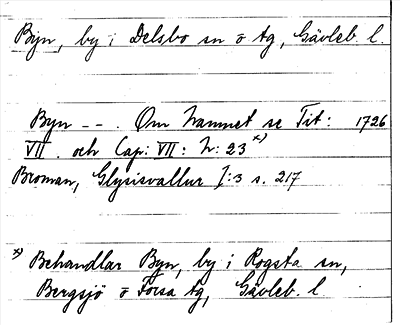 Byn, by i Delsbo sn o tg, Gävleb. l.
Byn -- . Om Namnet se Tit: 1726
VII. och Cap: VII: N: 23 x)
Broman, Glysisvallur I:3 s. 217
x) Behandlar Byn, by i Rogsta sn,
Bergsjö o Forsa tg, Gävleb. l.